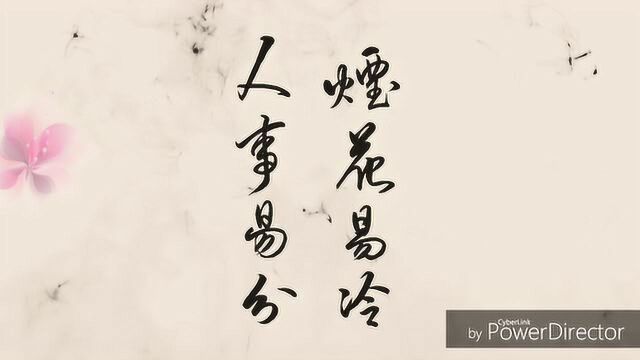 煙花易冷
人事易分
CyberLink
by PowerDirector